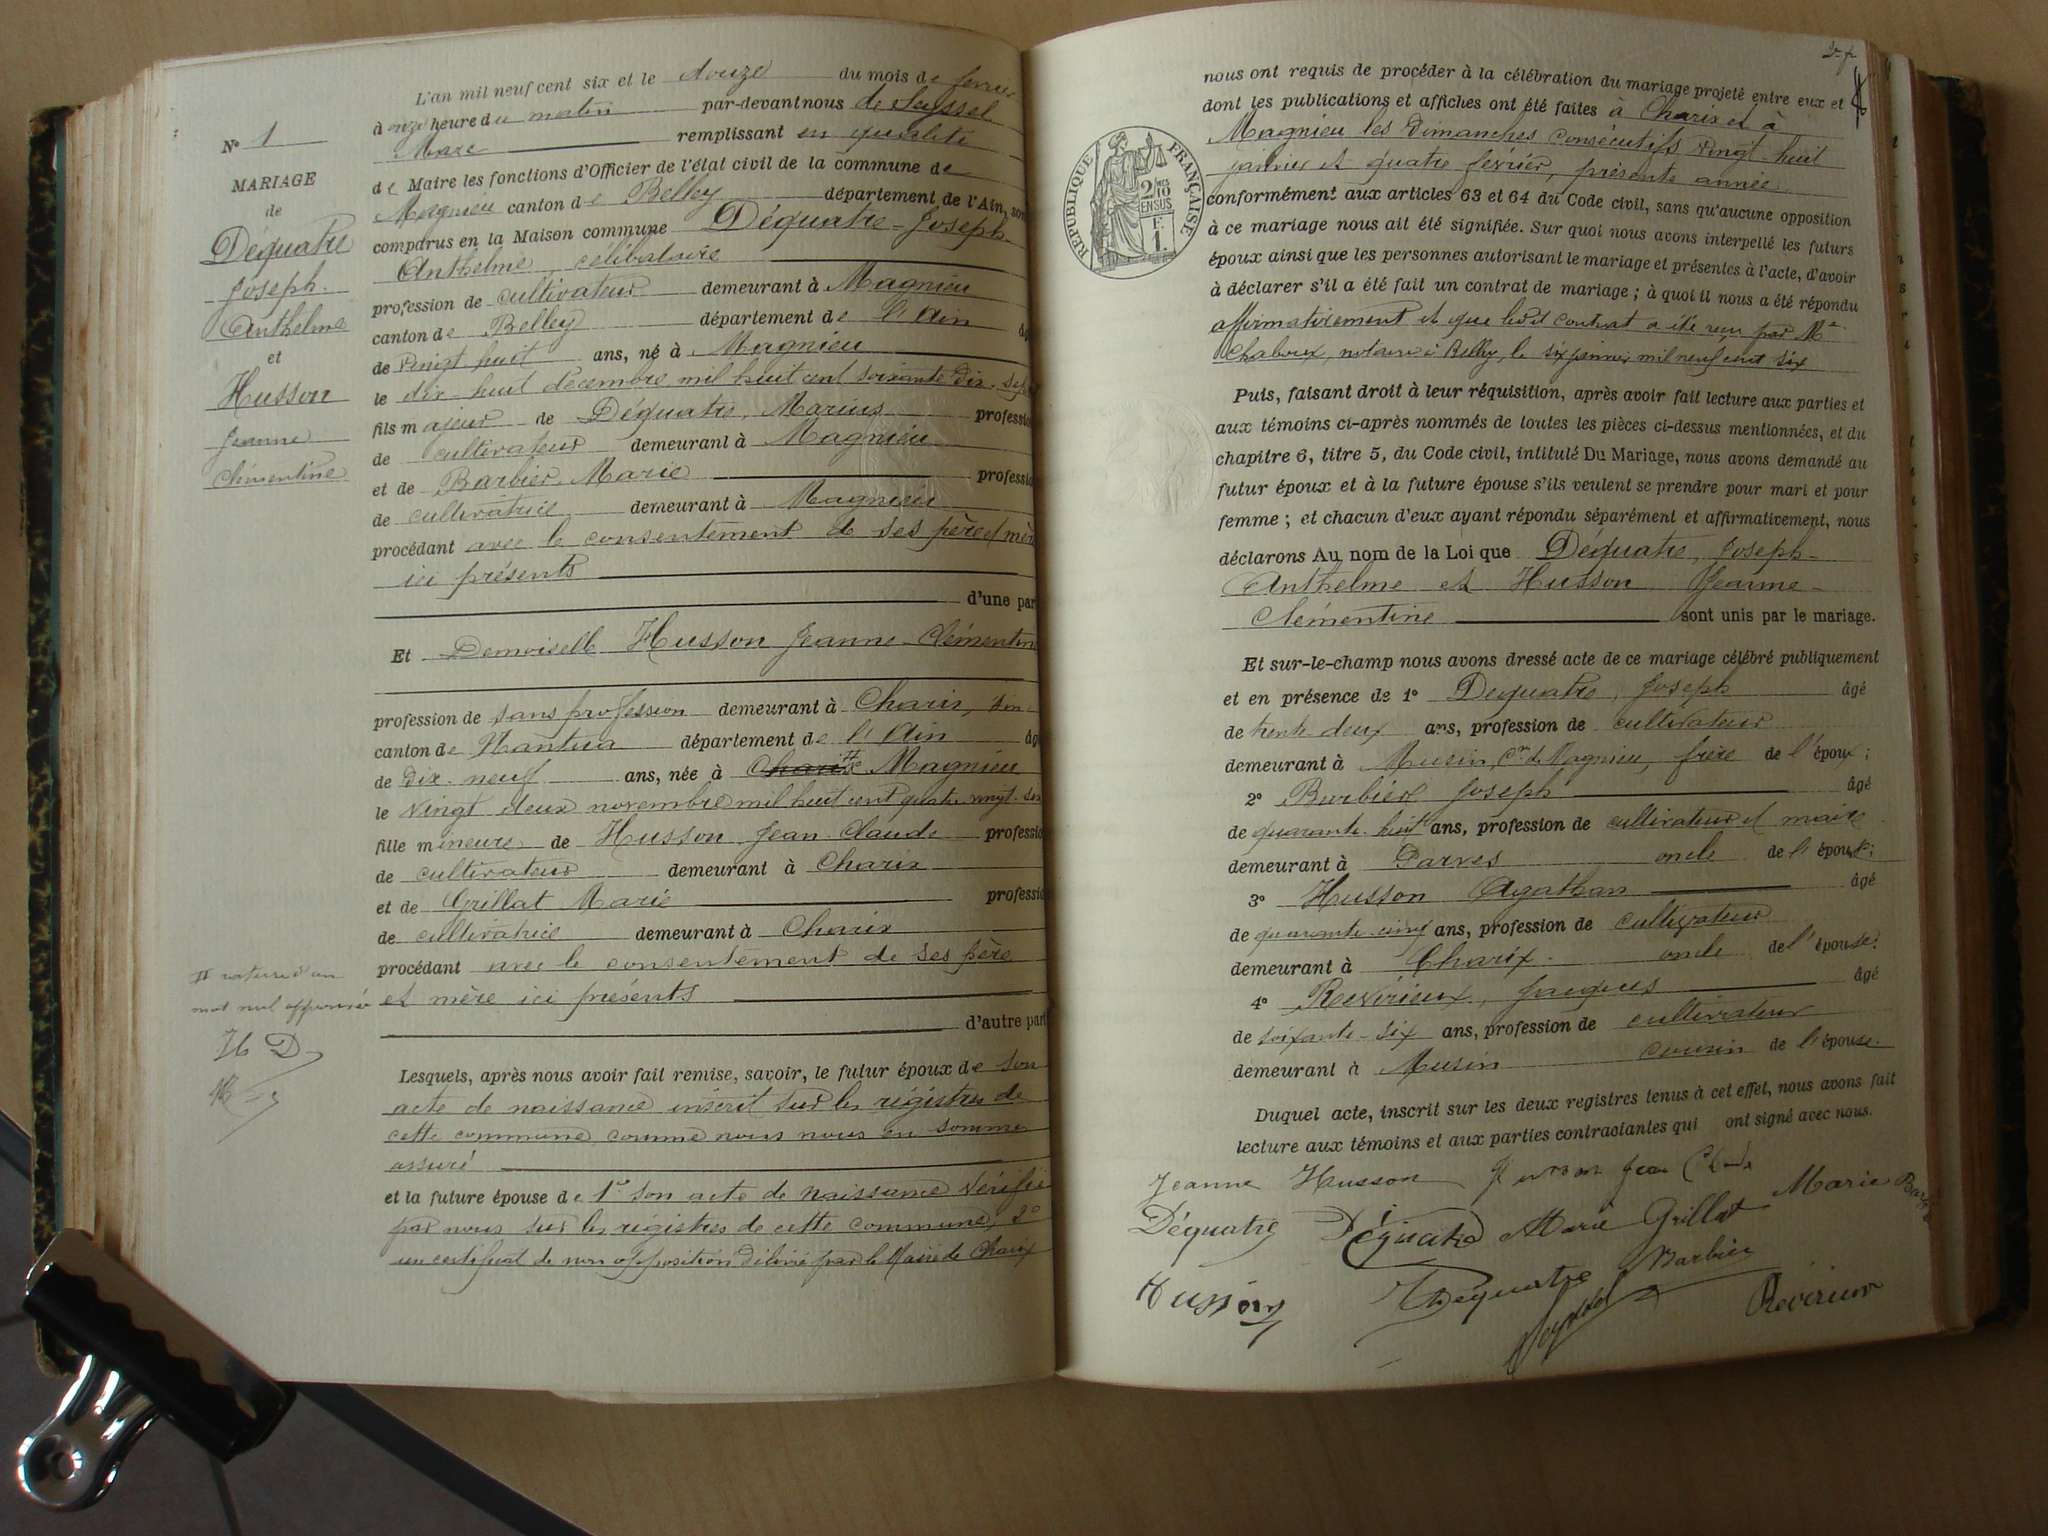 N° 1
MARIAGE
de
Déquatre
Joseph
Anthelme
et
Husson
Jeanne
Clémentine
L'an mil neuf cent six et le douze du mois de février
à onze heure du matin par-devant nous de Seyssel
Marc remplissant en qualité
de Maire les fonctions d'Officier de l'état civil de la commune de
Magnieu canton de Belley département de l'Ain, sont
comparus en la Maison commune Déquatre Joseph
Anthelme célibataire
profession de cultivateur demeurant à Magnieu
canton de Belley département de l'Ain âgé
de vingt huit ans, né à Magnieu
le dix huit décembre mil huit cent soixante dix-sept
fils majeur de Déquatre Marius profession
de cultivateur demeurant à Magnieu
et de Barbier Marie profession
de cultivatrice demeurant à Magnieu
procédant avec le consentement de ses père et mère
ici présents
d'une part
Et Demoiselle Husson Jeanne Clémentine
profession de sans profession demeurant à Charix,
canton de Nantua département de l'Ain âgé
de dix-neuf ans, née à Charix Magnieu
le vingt deux novembre mil huit cent quatre vingt-six
fille mineure de Husson Jean-Claude profession
de cultivateur demeurant à Charix
et de Grillat Marie profession
de cultivatrice demeurant à Charix
procédant avec le consentement de ses père
et mère ici présents
d'autre part
mot nul approuvé
H D
Lesquels, après nous avoir fait remise, savoir, le futur époux de son
acte de naissance inscrit sur les régistres de
cette commune comme nous nous en sommes
assuré
et la future épouse de 1° son acte de naissance vérifié
par nous sur les régistres de cette commune, 2°
un certificat de non opposition délivré par le Maire de Charix
nous ont requis de procéder à la célébration du mariage projeté entre eux et
dont les publications et affiches ont été faites à Charix et à
Magnieu les Dimanches consécutifs vingt huit
janvier et quatre février, présente année
conformément aux articles 63 et 64 du Code civil, sans qu'aucune opposition
à ce mariage nous ait été signifiée. Sur quoi nous avons interpellé les futurs
époux ainsi que les personnes autorisant le mariage et présentes à l'acte, d'avoir
à déclarer s'il a été fait un contrat de mariage ; à quoi il nous a été répondu
affirmativement et que ledit contrat a été reçu par Me
Chaboux, notaire à Belley, le six janvier mil neuf cent six
RÉPUBLIQUE FRANÇAISE
2/10
EN SUS
Puis, faisant droit à leur réquisition, après avoir fait lecture aux parties et
aux témoins ci-après nommés de toutes les pièces ci-dessus mentionnées, et du
chapitre 6, titre 5, du Code civil, intitulé Du Mariage, nous avons demandé au
futur époux et à la future épouse s'ils veulent se prendre pour mari et pour
femme ; et chacun d'eux ayant répondu séparément et affirmativement, nous
déclarons Au nom de la Loi que Déquatre, Joseph
Anthelme et Husson Jeanne
Clémentine sont unis par le mariage.
Et sur-le-champ nous avons dressé acte de ce mariage célébré publiquement
et en présence de 1° Dequatre, Joseph âgé
de trente deux ans, profession de cultivateur
demeurant à Musin, Cne de Magnieu, frère de l'époux ;
2° Barbier Joseph âgé
de quarante-huit ans, profession de cultivateur et maire
demeurant à Parves oncle de l'époux ;
3° Husson Agathan âgé
de quarante-cinq ans, profession de cultivateur
demeurant à Charix oncle de l'épouse.
4° Revérieux, Jacques âgé
de soixante-six ans, profession de cultivateur
demeurant à Musin cousin de l'épouse.
Duquel acte, inscrit sur les deux registres tenus à cet effet, nous avons fait
lecture aux témoins et aux parties contractantes qui ont signé avec nous.
Jeanne Husson Husson Jean Claude
Déquatre Déquatre Marie Grillat Marie
Husson Dequatre Barbier